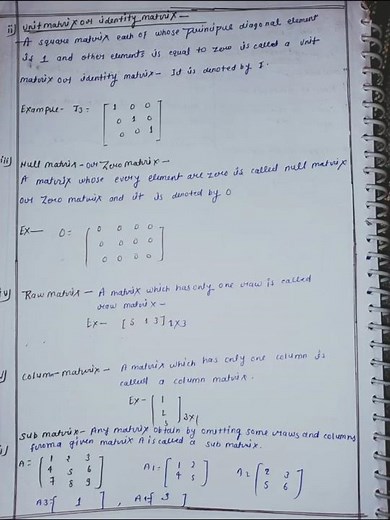 ii) unit matrix or identity matrix —
A square matrix each of whose principal diagonal element
is 1 and other elements is equal to zero is called a unit
matrix or identity matrix - It is denoted by I.
Example - I3 = [ 1 0 0
0 1 0
0 0 1 ]
iii) Null matrix - or Zero matrix —
A matrix whose every element are zero is called null matrix
or Zero matrix and it is denoted by 0
Ex — 0 = [ 0 0 0 0
0 0 0 0
0 0 0 0 ]
iv) Raw matrix — A matrix which has only one raw is called
raw matrix —
Ex - [ 5 1 3 ] 1x3
v) column-matrix - A matrix which has only one column is
called a column matrix.
Ex - [ 1
2
3 ] 3x1
Sub matrix - Any matrix obtain by omitting some raws and columns
form a given matrix A is called a sub matrix.
A = [ 1 2 3
4 5 6
7 8 9 ]
A1 = [ 1 2
4 5 ]
A2 [ 2 3
5 6 ]
A3 = [ 1 ] , A4 = [ 9 ]